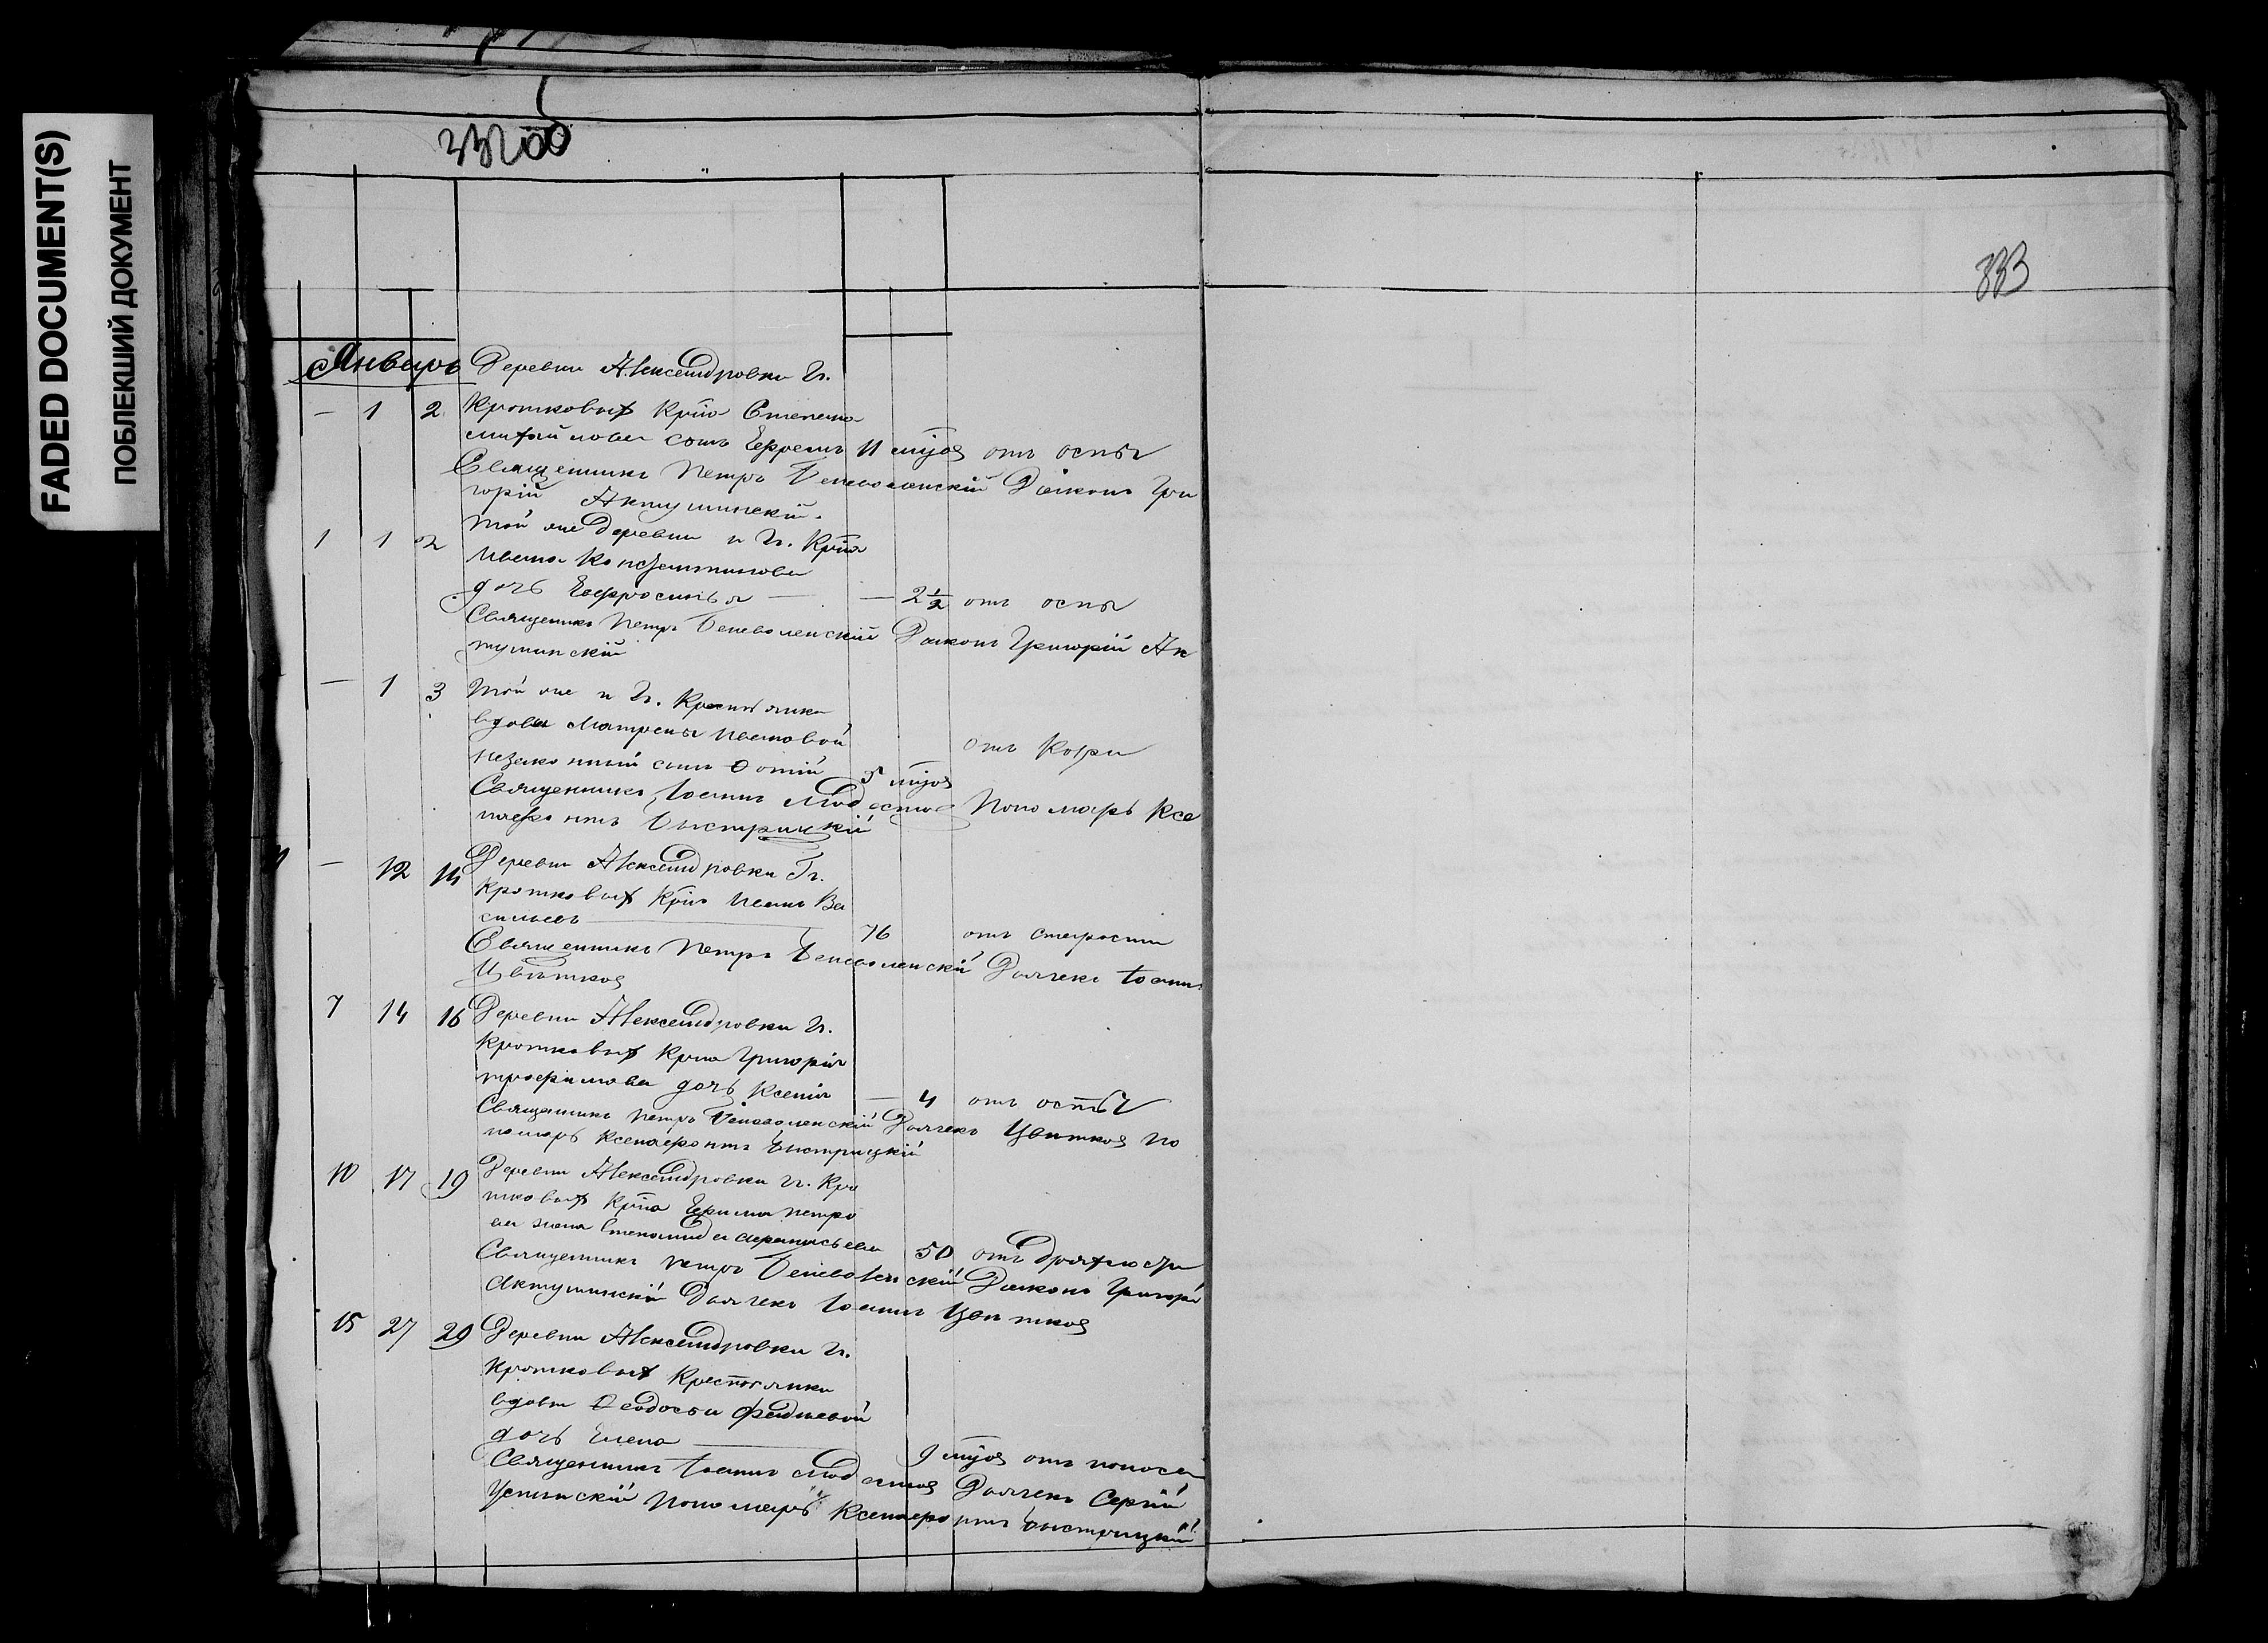 FADED DOCUMENT(S)
ПОБЛЕКШИЙ ДОКУМЕНТ
333
Январь
Деревни Александровки Гг.
— 1 2 Кротковых Крна Степана
Михайлова сынъ Ефремъ 11 мцов отъ оспы
Священникъ Петръ Беневоленскій Діаконъ Гри
горій Актушинскій.
1 1 2 Той же деревни и Гг. Крна
Ивана Константинова
дочь Евфросинья — — 2½ отъ оспы
Священникъ Петръ Беневоленскій Діаконъ Григорій Ак
тушинскій
— 1 3 Той же и Гг. Крестьянки
вдовы Матрены Ивановой
незаконный сынъ Фотій 5 мцов отъ Кори
Священникъ Іоаннъ Модестов Пономарь Ксе
нофонтъ Быстрицкій
— 12 14 Деревни Александровки Гг.
Кротковых Крнъ Иванъ Ва
сильевъ 76 отъ старости
Священникъ Петръ Беневоленскій Дьячекъ Іоаннъ
Цвѣтков
7 14 16 Деревни Александровки Гг.
Кротковых Крна Григорія
Трофимова дочь Ксенія — 4 отъ оспы
Священникъ Петръ Беневоленскій Дьячекъ Цвѣтков По
номарь Ксенофонтъ Быстрицкій
10 17 19 Деревни Александровки Гг. Кро
тковых Крна Ефима Петро
ва жена Степанида Афанасьева 50 отъ дряхлости
Священникъ Петръ Беневоленскій Діаконъ Григорій
Актушинскій Дьячекъ Іоаннъ Цвѣтков
15 27 29 Деревни Александровки Гг.
Кротковых Крестьянки
вдовы Феодосьи
дочь Елена 9 мцов отъ поноса
Священникъ Іоаннъ Модестов Дьячекъ Сергій
Успенскій Пономарь Ксенофонтъ Быстрицкій